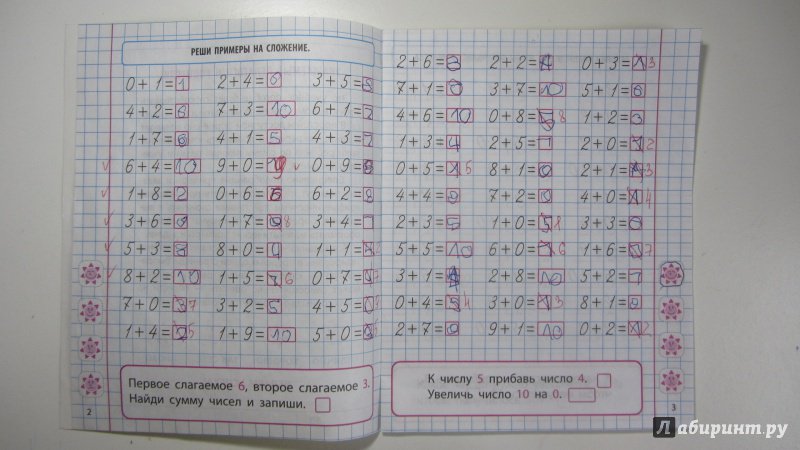 РЕШИ ПРИМЕРЫ НА СЛОЖЕНИЕ.
0+1=1 2+4=6 3+5=
4+2=6 7+3=10 6+1=
1+7= 4+1=5 4+3=
6+4=10 9+0=9 0+9=
1+8= 0+6=6 6+2=8
3+6= 1+7=8 3+4=
5+3= 8+0= 1+1=
8+2=10 1+5=6 0+7=
7+0=7 3+2=5 4+5=
1+4=5 1+9=10 5+0=
Первое слагаемое 6, второе слагаемое 3.
Найди сумму чисел и запиши.
2
2+6= 2+2=4 0+3=3
7+1= 3+7=10 5+1=6
4+6=10 0+8=8 1+2=3
1+3=4 2+5= 2+0=2
0+5=5 8+1= 2+1=3
4+4= 7+2= 4+0=4
2+3=5 1+0=1 3+3=
5+5=10 6+0=6 1+6=7
3+1=4 2+8=10 5+2=
0+4=4 3+0=3 8+1=
2+7= 9+1=10 0+2=2
К числу 5 прибавь число 4.
Увеличь число 10 на 0.
3
Лабиринт.ру